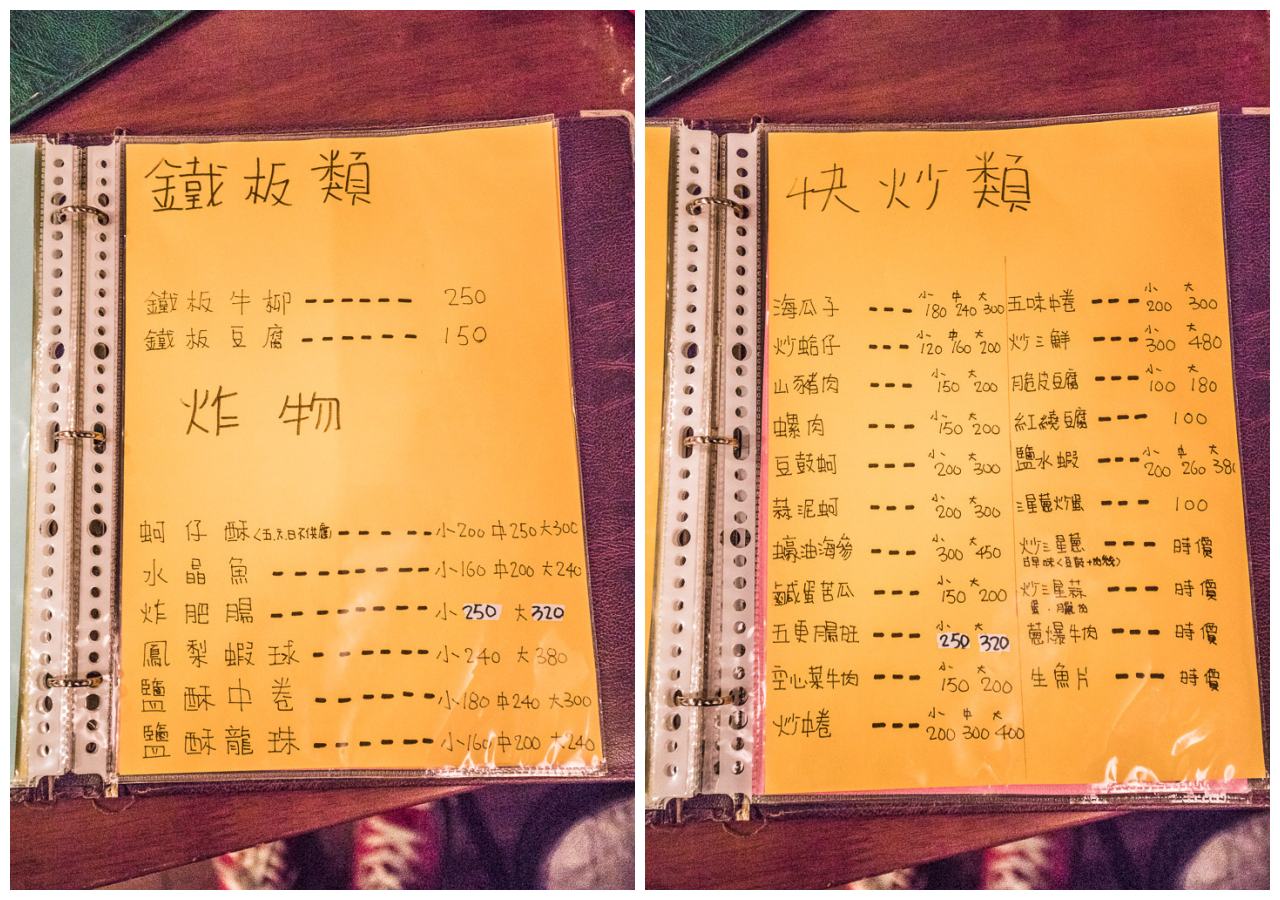 鐵板類
鐵板牛柳 ------ 250
鐵板豆腐 ------ 150
炸物
蚵仔酥<五.六.日不供應> ------ 小200 中250 大300
水晶魚 -------- 小160 中200 大240
炸肥腸 -------- 小250 大320
鳳梨蝦球 ------ 小240 大380
鹽酥中卷 ------ 小180 中240 大300
鹽酥龍珠 ------ 小160 中200 大240
快炒類
海瓜子 --- 小180 中240 大300
炒蛤仔 --- 小120 中160 大200
山豬肉 --- 小150 大200
螺肉 --- 小150 大200
豆鼓蚵 --- 小200 大300
蒜泥蚵 --- 小200 大300
蠔油海參 --- 小300 大450
鹹蛋苦瓜 --- 小150 大200
五更腸旺 --- 小250 大320
空心菜牛肉 --- 小150 大200
炒中卷 --- 小200 中300 大400
五味中卷 --- 小200 大300
炒三鮮 --- 小300 大480
脆皮豆腐 --- 小100 大180
紅燒豆腐 --- 100
鹽水蝦 --- 小200 中260 大380
三星蔥炒蛋 --- 100
炒三星蔥 --- 時價
炒三星蒜 --- 時價
蛋.臘肉
蔥爆牛肉 --- 時價
生魚片 --- 時價